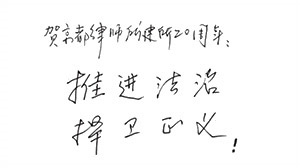 贺京都律师所建所20周年：
推进法治
捍卫正义！